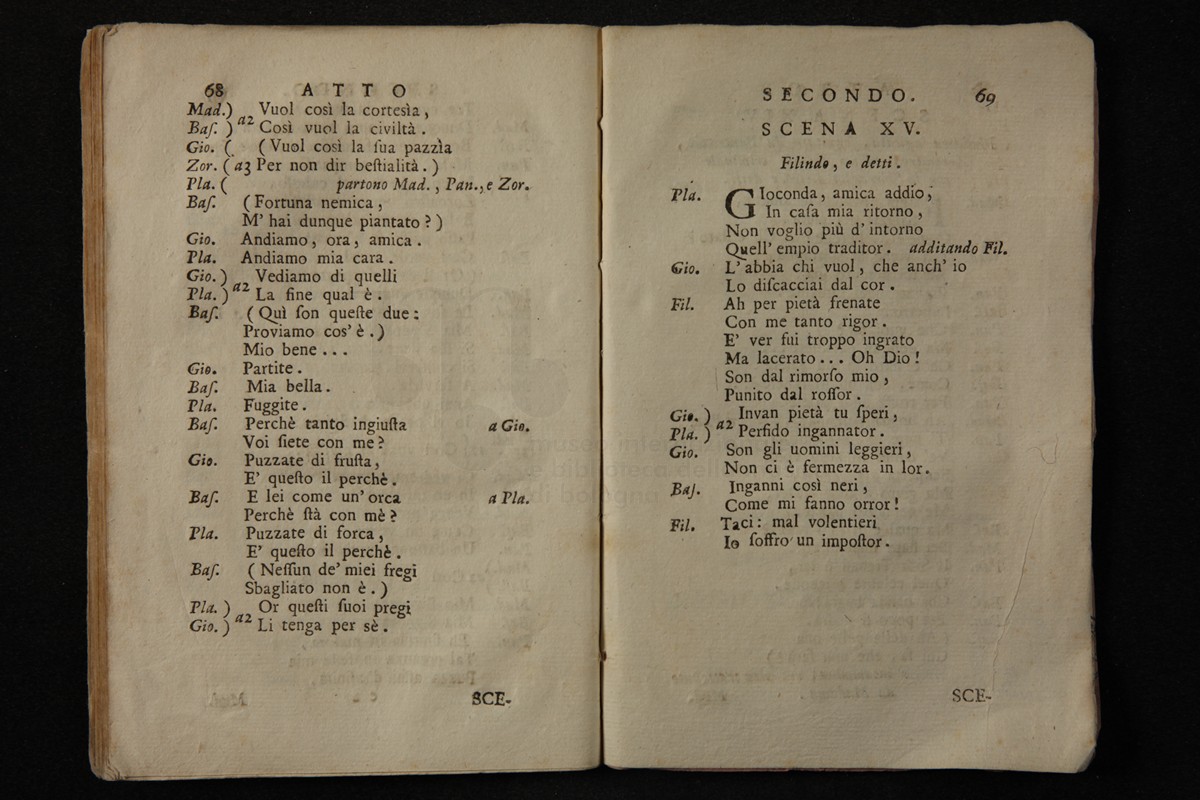 68 ATTO
Mad.) a2 Vuol così la cortesìa,
Baſ. ) Così vuol la civiltà.
Gio. ( (Vuol così la ſua pazzìa
Zor. ( a3 Per non dir beſtialità.)
Pla. ( partono Mad., Pan., e Zor.
Baſ. (Fortuna nemica,
M' hai dunque piantato?)
Gio. Andiamo, ora, amica.
Pla. Andiamo mia cara.
Gio. ) a2 Vediamo di quelli
Pla. ) La fine qual è.
Baſ. (Quì ſon queſte due:
Proviamo cos' è.)
Mio bene...
Gio. Partite.
Baſ. Mia bella.
Pla. Fuggite.
Baſ. Perchè tanto ingiuſta a Gio.
Voi ſiete con me?
Gio. Puzzate di fruſta,
E' queſto il perchè.
Baſ. E lei come un' orca a Pla.
Perchè ſtà con mè?
Pla. Puzzate di forca,
E' queſto il perchè.
Baſ. (Neſſun de' miei fregi
Sbagliato non è.)
Pla. ) a2 Or queſti ſuoi pregi
Gio. ) Li tenga per sè.
SCE-
SECONDO. 69
SCENA XV.
Filindo, e detti.
Pla. GIoconda, amica addio,
In caſa mia ritorno,
Non voglio più d' intorno
Quell' empio traditor. additando Fil.
Gio. L' abbia chi vuol, che anch' io
Lo diſcacciai dal cor.
Fil. Ah per pietà frenate
Con me tanto rigor.
E' ver fui troppo ingrato
Ma lacerato... Oh Dio!
Son dal rimorſo mio,
Punito dal roſſor.
Gio. ) a2 Invan pietà tu ſperi,
Pla. ) Perfido ingannator.
Gio. Son gli uomini leggieri,
Non ci è fermezza in lor.
Baſ. Inganni così neri,
Come mi fanno orror!
Fil. Taci: mal volentieri
Io ſoffro un impoſtor.
SCE-